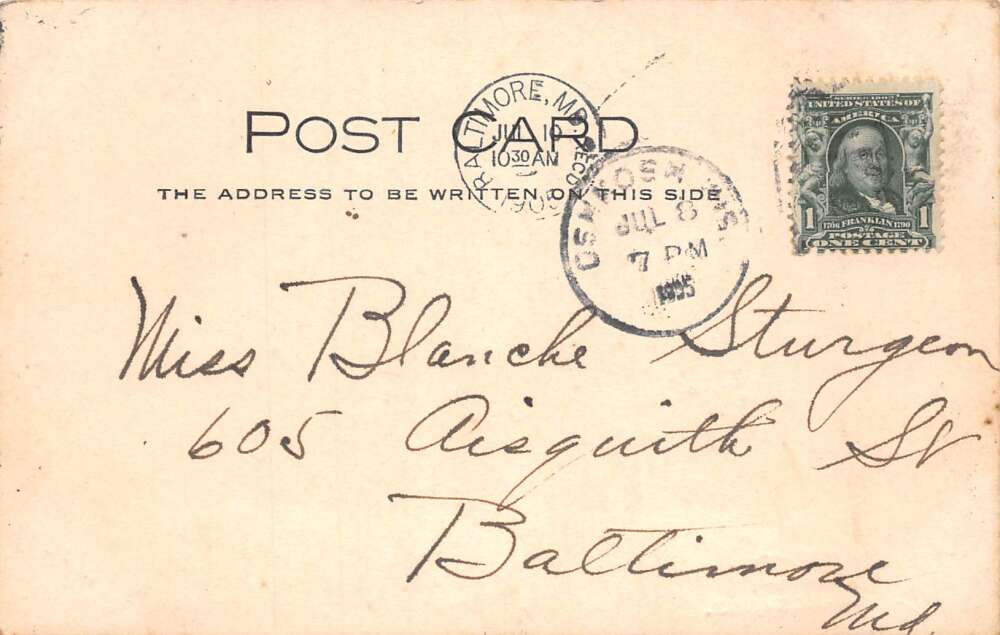 POST CARD
THE ADDRESS TO BE WRITTEN ON THIS SIDE
BALTIMORE, MD. REC'D
JUL 10
10 30 AM
1905
OSHKOSH WIS.
JUL 8
7 PM
SERIES 1902
UNITED STATES OF
AMERICA
1 1
1706 FRANKLIN 1790
POSTAGE
ONE CENT
Miss Blanche Sturgeon
605 Aisquith St
Baltimore
Md.